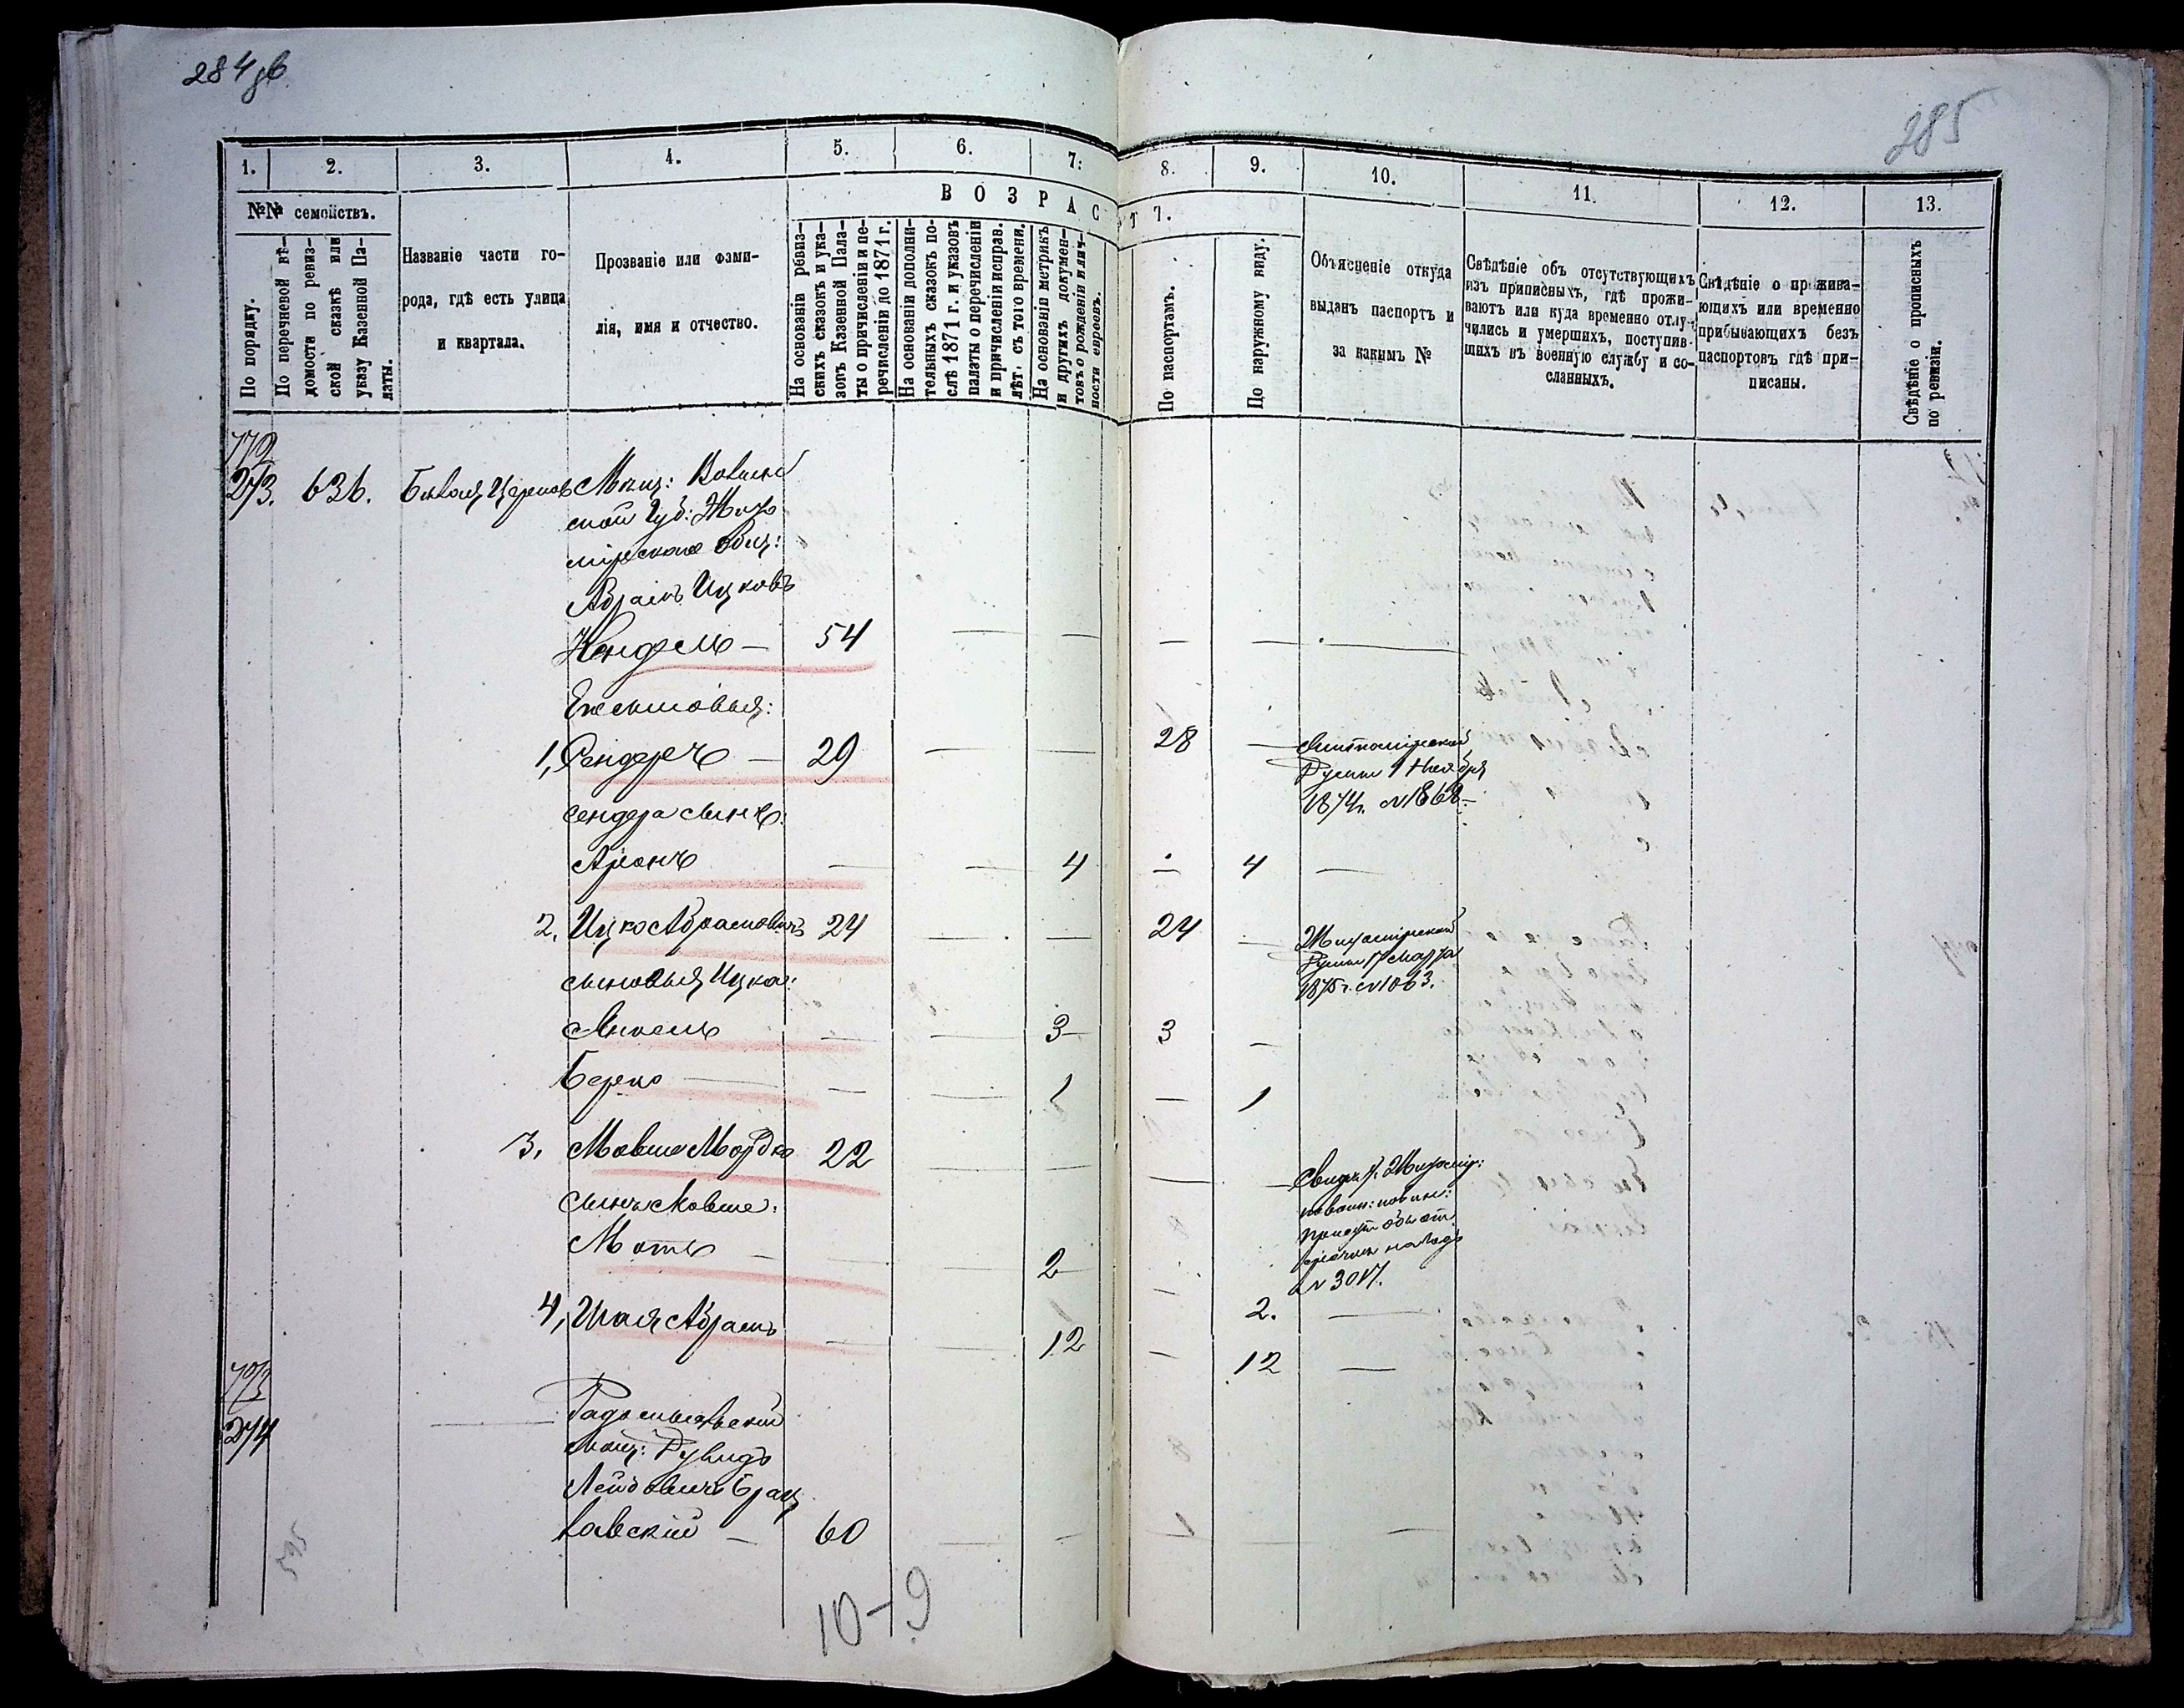 284 об
285
1. 2. 3. 4. 5. 6. 7: 8. 9. 10. 11. 12. 13.
№№ семействъ.
По порядку.
По перечневой вѣ-
домости по ревиз-
ской сказкѣ или
указу Казенной Па-
латы.
Названіе части го-
рода, гдѣ есть улица
и квартала.
Прозваніе или фами-
лія, имя и отчество.
ВОЗРАС
Т 7.
На основаніи ревиз-
скихъ сказокъ и ука-
зовъ Казенной Пала-
ты о причисленіи и пе-
речисленіи до 1871 г.
На основаніи дополни-
тельныхъ сказокъ по-
слѣ 1871 г. и указовъ
палаты о перечисленіи
и причисленіи исправ.
лѣт. съ того времени.
На основаніи метрикъ
и другихъ докумен-
товъ о рожденіи и лич-
ности евреевъ.
По паспортамъ.
По наружному виду.
Объясненіе откуда
выданъ паспортъ и
за какимъ №
Свѣдѣніе объ отсутствующихъ
изъ приписныхъ, гдѣ прожи-
ваютъ или куда временно отлу-
чились и умершихъ, поступив-
шихъ въ военную службу и со-
сланныхъ.
Свѣдѣніе о прожива-
ющихъ или временно
прибывающихъ безъ
паспортовъ гдѣ при-
писаны.
Свѣдѣніе о прописныхъ
по ревизіи.
772
273. 636. Бѣлая Церковь Мѣщ: Волын
ской Губ: Жито
мірскаго Общ:
Абрамъ Ицковъ
54
Его сыновья:
1, Сендеръ — 29 — — 28 — Житомірской
Думы 1 Ноября
1874 г. №1868
Сендера сынъ:
Аронъ — — 4 — 4 —
2. Ицко Абрамовичъ 24 — — 24 — Житомірской
Думы 17 Марта
1875 г. №1063.
сыновья Ицка:
— — 3 3 —
Берко — — 1 — 1
3. Мовша Мордко 22 — — — — Свидѣт. Житомір:
по воин: повин:
№ 3017.
сынъ Мовши:
Мотъ — — 2 — 2. —
4, Шая Абрамъ — — 12 — 12 —
773
274 — Радомысльскій
мѣщ: Рувидъ
Лейбовичъ Брац
лавскій — 60 — — — — —
595
10-9